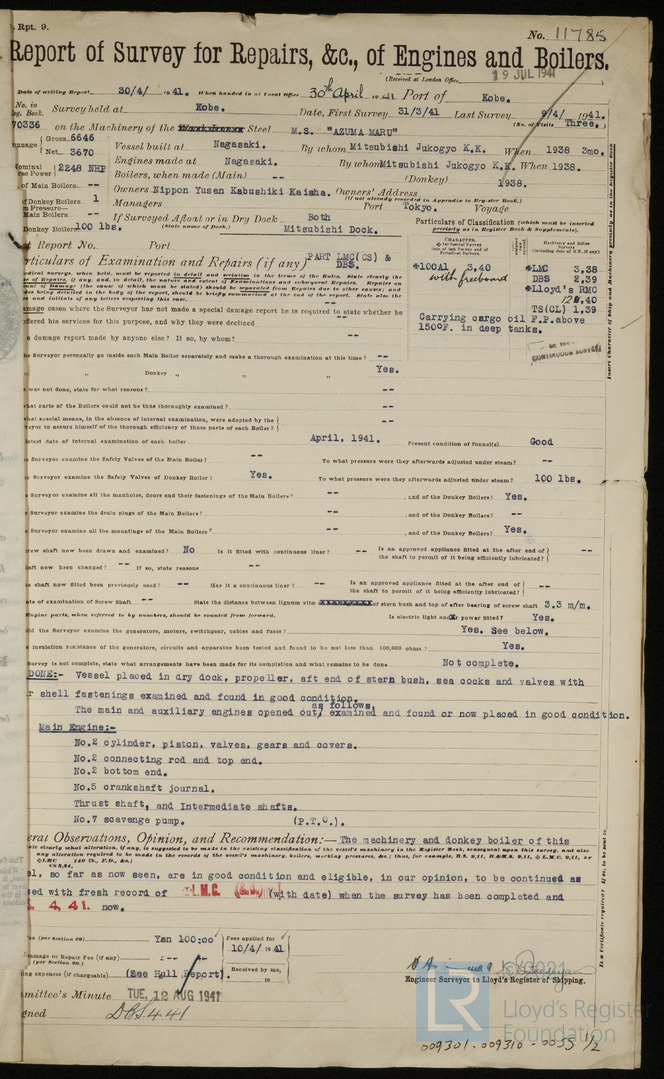 Rpt. 9.
No. 11785
Report of Survey for Repairs, &c., of Engines and Boilers.
(Received at London Office 19 JUL 1941
Date of writing Report 30/4/ 1941. When handed in at Local Office 30th April 1941 Port of Kobe.
No. in Survey held at Kobe. Date, First Survey 31/3/41 Last Survey 9/4/ 1941.
(No. of Visits Three.)
70336 on the Machinery of the Steel M.S. "AZUMA MARU"
Gross 6646
Net 3670
Vessel built at Nagasaki. By whom Mitsubishi Jukogyo K.K. When 1938 3mo.
2248 NHP Engines made at Nagasaki. By whom Mitsubishi Jukogyo K.K. When 1938.
of Main Boilers -- Boilers, when made (Main) -- (Donkey) 1938.
Donkey Boilers 1 Owners Nippon Yusen Kabushiki Kaisha. Owners' Address
(If not already recorded in Appendix to Register Book.)
Main Boilers -- Managers Port Tokyo. Voyage
Donkey Boilers 100 lbs. If Surveyed Afloat or in Dry Dock Both
(State name of Dock.) Mitsubishi Dock.
Particulars of Classification (which must be inserted precisely as in Register Book & Supplements).
Report No. Port
Particulars of Examination and Repairs (if any) PART LMC(CS) & DBS.
100A1 3,40
with freeboard
LMC 3,38
DBS 2,39
Lloyd's RMC
12,40
TS(CL) 1,39
Carrying cargo oil F.P. above
150°F. in deep tanks.
CONTINUOUS SURVEY
damage cases where the Surveyor has not made a special damage report he is required to state whether he
offered his services for this purpose, and why they were declined --
a damage report made by anyone else? If so, by whom? --
the Surveyor personally go inside each Main Boiler separately and make a thorough examination at this time? --
" Donkey " " " Yes.
was not done, state for what reasons? --
what parts of the Boilers could not be thoroughly examined? --
what special means, in the absence of internal examination, were adopted by the
Surveyor to assure himself of the thorough efficiency of those parts of each Boiler? --
latest date of internal examination of each boiler April, 1941. Present condition of funnel(s) Good
Surveyor examine the Safety Valves of the Main Boiler? -- To what pressure were they afterwards adjusted under steam? --
Surveyor examine the Safety Valves of Donkey Boiler? Yes. To what pressure were they afterwards adjusted under steam? 100 lbs.
Surveyor examine all the manholes, doors and their fastenings of the Main Boilers? -- , and of the Donkey Boilers? Yes.
Surveyor examine the drain plugs of the Main Boilers? -- , and of the Donkey Boilers? --
Surveyor examine all the mountings of the Main Boilers? -- , and of the Donkey Boilers? Yes.
screw shaft now been drawn and examined? No Is it fitted with continuous liner? -- Is an approved appliance fitted at the after end of the shaft to permit of it being efficiently lubricated? --
shaft now been changed? -- If so, state reasons --
shaft now fitted been previously used? -- Has it a continuous liner? -- Is an approved appliance fitted at the after end of the shaft to permit of it being efficiently lubricated? --
date of examination of Screw Shaft -- State the distance between lignum vitæ of stern bush and top of after bearing of screw shaft 3.3 m/m.
Engine parts, when referred to by numbers, should be counted from forward. Is electric light and power fitted? Yes.
did the Surveyor examine the generators, motors, switchgear, cables and fuses? Yes. See below.
insulation resistance of the generators, circuits and apparatus been tested and found to be not less than 100,000 ohms? Yes.
Survey is not complete, state what arrangements have been made for its completion and what remains to be done. Not complete.
DONE:- Vessel placed in dry dock, propeller, aft end of stern bush, sea cocks and valves with
r shell fastenings examined and found in good condition.
The main and auxiliary engines opened out, as follows, examined and found or now placed in good condition.
Main Engine:-
No.2 cylinder, piston, valves, gears and covers.
No.2 connecting rod and top end.
No.2 bottom end.
No.5 crankshaft journal.
Thrust shaft, and Intermediate shafts.
No.7 scavenge pump. (P.T.O.).
General Observations, Opinion, and Recommendation:— The machinery and donkey boiler of this
el, so far as now seen, are in good condition and eligible, in our opinion, to be continued as
sed with fresh record of L.M.C. (with date) when the survey has been completed and
4,41. now.
(per Section 29) Yen 100:00 Fees applied for 10/4/ 1941
Damage or Repair Fee (if any) (per Section 29.) £-- Received by me,
expenses (if chargeable) (See Hull Report).
Engineer Surveyor to Lloyd's Register of Shipping.
Committee's Minute TUE. 12 AUG 1941
DBS 4.41
Is a Certificate required? If so, to be sent to
© 2021
LR Lloyd's Register Foundation
009301-009310-0055 1/2